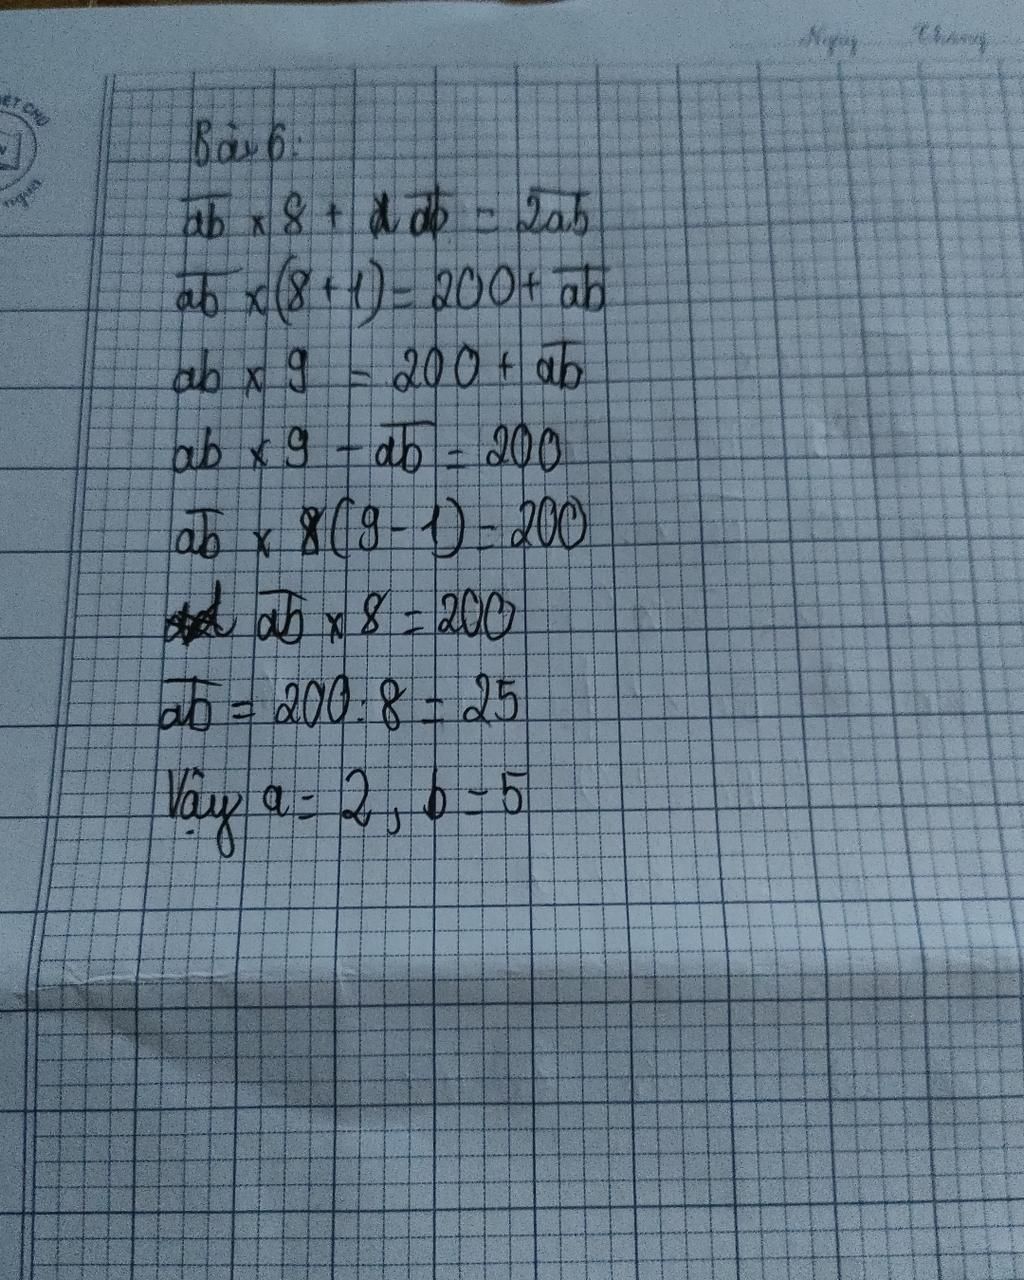 Ngày Tháng
ẾT CHỮ
Bài 6:
a̅b̅ x 8 + a̅b̅ = 2̅a̅b̅
a̅b̅ x (8 + 1) = 200 + a̅b̅
ab x 9 = 200 + a̅b̅
ab x 9 - a̅b̅ = 200
a̅b̅ x 8 (9 - 1) = 200
a̅b̅ x 8 = 200
a̅b̅ = 200 : 8 = 25
Vậy a = 2, b = 5